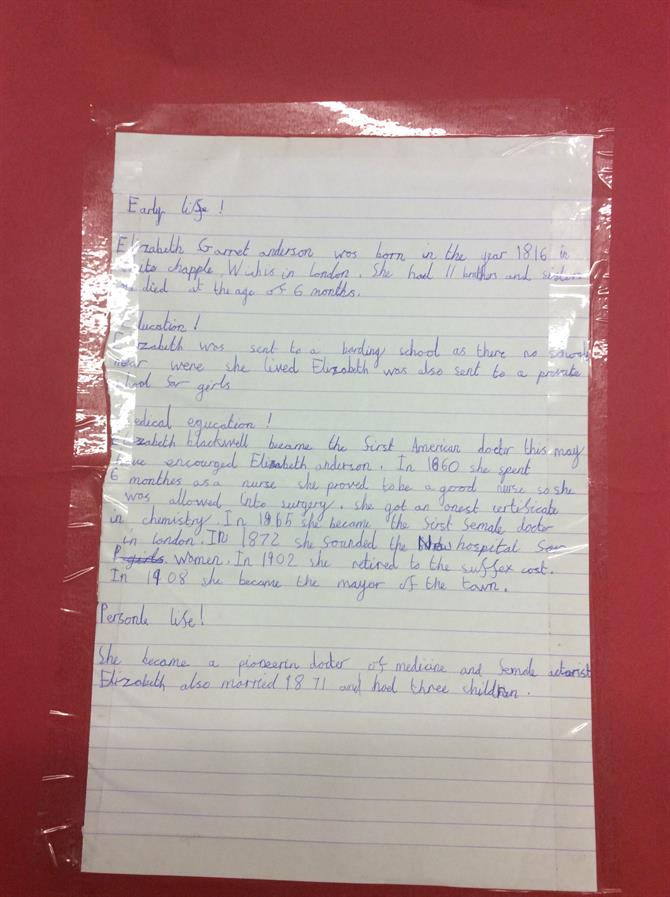 Early life!
Elizabeth Garret anderson was born in the year 1816 in
chapple Wichis in london. She had 11 brothers and
died at the age of 6 months.
Education!
Elizabeth was sent to a bording school as there no
near were she lived Elizabeth was also sent to a private
school for girls
Medical equcation!
Elizabeth blackwell became the first American doctor this may
have encourged Elizabeth anderson. In 1860 she spent
6 monthes as a nurse she proved to be a good nurse so she
was allowed into surgery. she got an onest certificate
in chemistry. In 1965 she became the first female doctor
in london. IN 1872 she founded the New hospital for
women. In 1902 she retired to the suffex cost.
In 1908 she became the mayor of the town.
Personle life!
She became a pioneerin docter of medicine and female
Elizabeth also married 1871 and had three children.